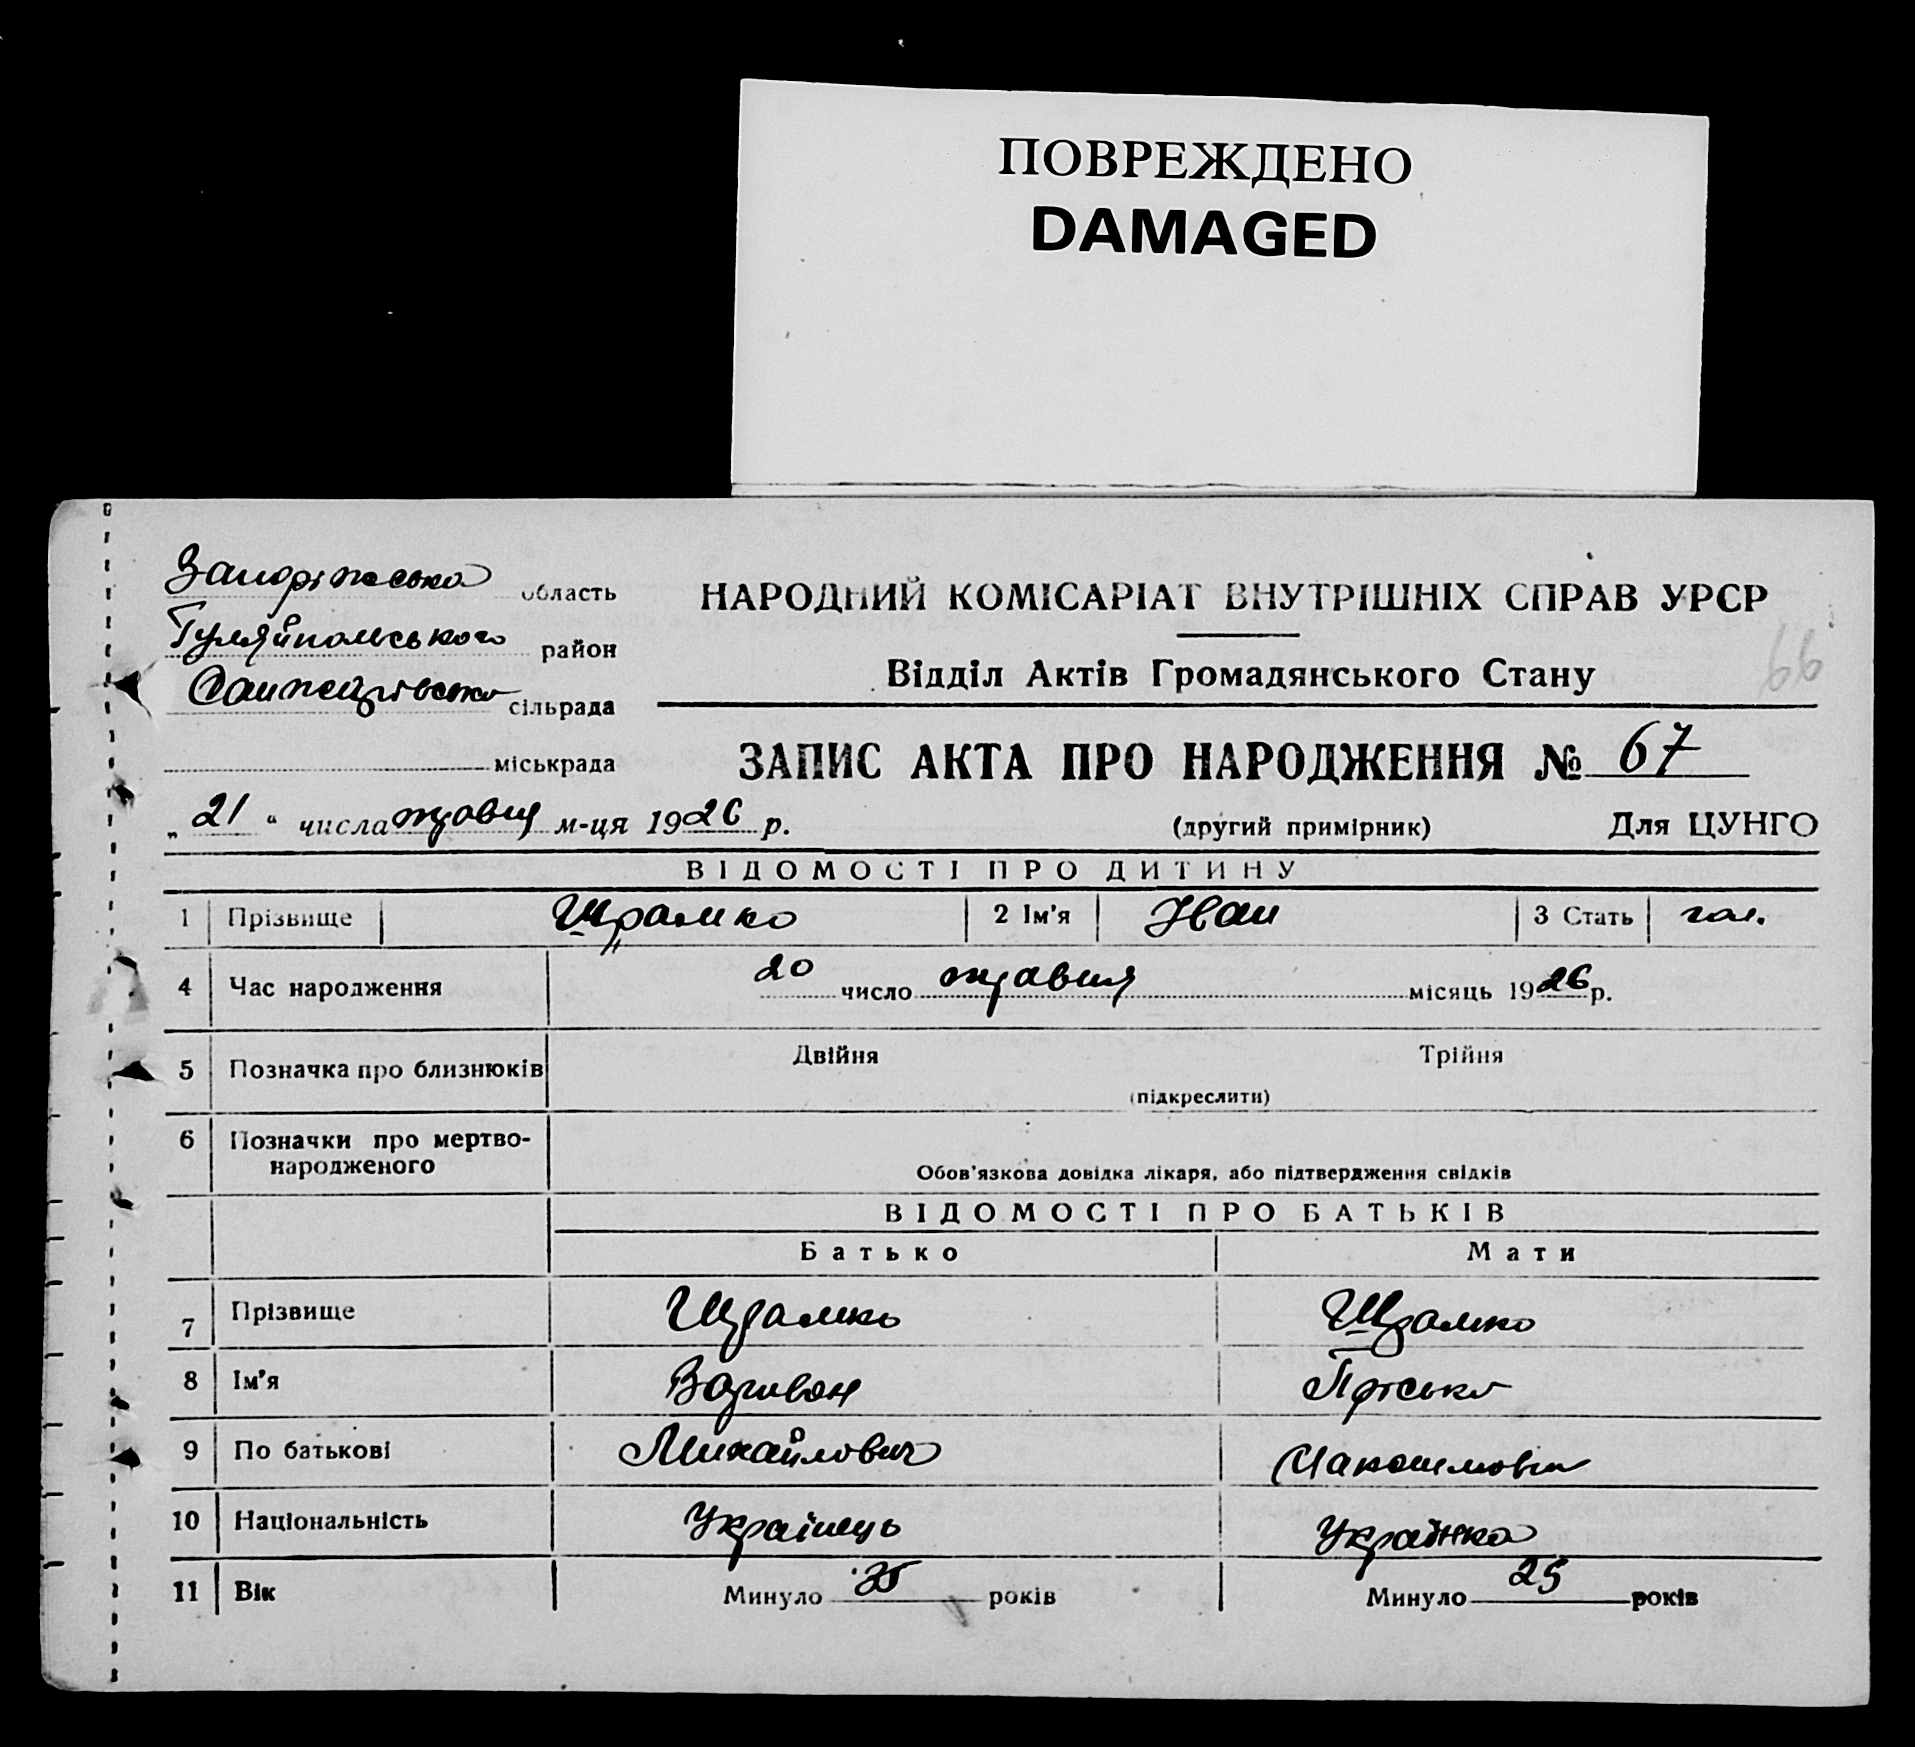 ПОВРЕЖДЕНО
DAMAGED
Запоріжська область
Гуляйпольського район
сільрада
міськрада
НАРОДНИЙ КОМІСАРІАТ ВНУТРІШНІХ СПРАВ УРСР
Відділ Актів Громадянського Стану
66
ЗАПИС АКТА ПРО НАРОДЖЕННЯ № 67
„ 21 “ числа травня м-ця 1926 р.
(другий примірник) Для ЦУНГО
ВІДОМОСТІ ПРО ДИТИНУ
1 Прізвище Шрамко 2 Ім'я Іван 3 Стать чол.
4 Час народження 20 число травня місяць 1926 р.
5 Позначка про близнюків Двійня Трійня
(підкреслити)
6 Позначки про мертво-
народженого
Обов'язкова довідка лікаря, або підтвердження свідків
ВІДОМОСТІ ПРО БАТЬКІВ
Батько Мати
7 Прізвище Шрамко Шрамко
8 Ім'я
9 По батькові Михайлович
10 Національність Українець Українка
11 Вік Минуло 35 років Минуло 25 років